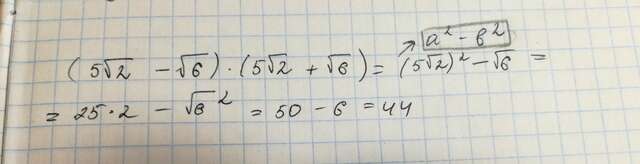 a² - b²
(5√2 - √6) · (5√2 + √6) = (5√2)² - √6 =
= 25·2 - √6² = 50 - 6 = 44